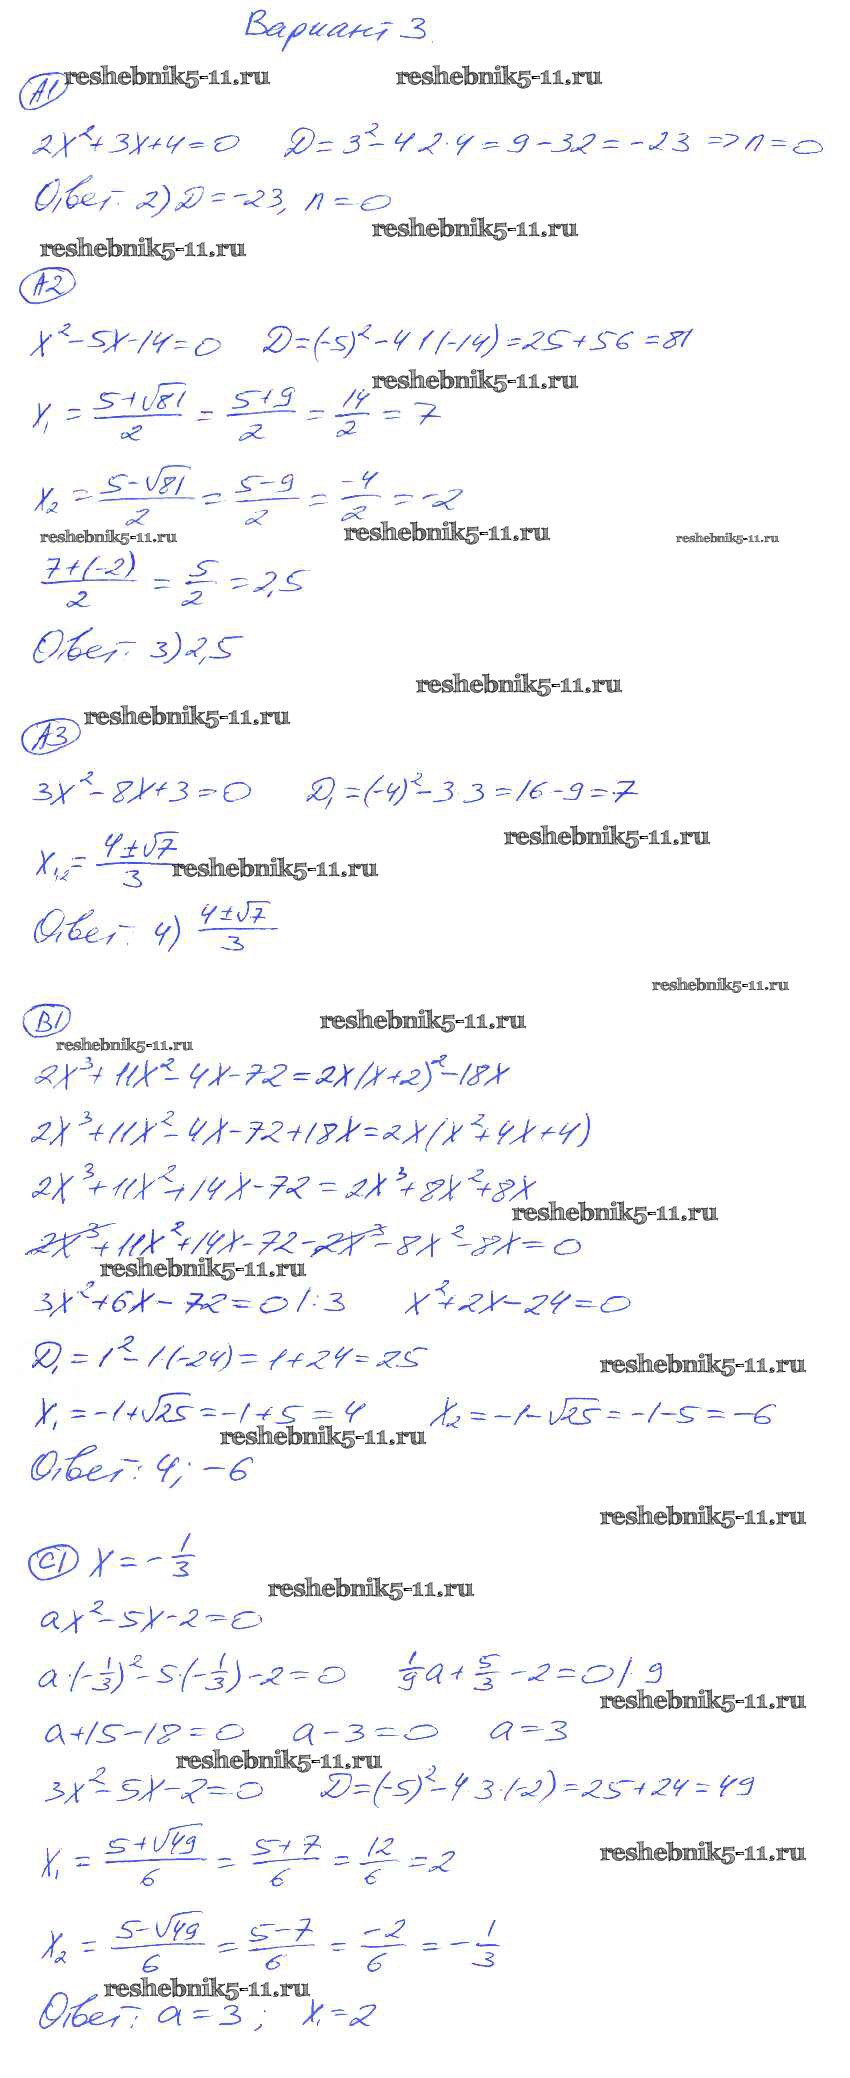 Вариант 3.
A1 reshebnik5-11.ru reshebnik5-11.ru
2x²+3x+4=0 D=3²-4·2·4=9-32=-23 => n=0
Ответ: 2) D=-23, n=0
reshebnik5-11.ru
reshebnik5-11.ru
A2
x²-5x-14=0 D=(-5)²-4·1·(-14)=25+56=81
reshebnik5-11.ru
x₁ = (5+√81)/2 = (5+9)/2 = 14/2 = 7
x₂ = (5-√81)/2 = (5-9)/2 = -4/2 = -2
reshebnik5-11.ru reshebnik5-11.ru reshebnik5-11.ru
(7+(-2))/2 = 5/2 = 2,5
Ответ: 3) 2,5
reshebnik5-11.ru
reshebnik5-11.ru
A3
3x²-8x+3=0 D₁=(-4)²-3·3=16-9=7
reshebnik5-11.ru
x₁,₂ = (4±√7)/3 reshebnik5-11.ru
Ответ: 4) (4±√7)/3
reshebnik5-11.ru
B1 reshebnik5-11.ru
reshebnik5-11.ru
2x³+11x²-4x-72=2x(x+2)²-18x
2x³+11x²-4x-72+18x=2x(x²+4x+4)
2x³+11x²+14x-72=2x³+8x²+8x
reshebnik5-11.ru
2x³+11x²+14x-72-2x³-8x²-8x=0
reshebnik5-11.ru
3x²+6x-72=0 |:3 x²+2x-24=0
D₁=1²-1·(-24)=1+24=25
reshebnik5-11.ru
x₁=-1+√25=-1+5=4 x₂=-1-√25=-1-5=-6
reshebnik5-11.ru
Ответ: 4; -6
reshebnik5-11.ru
C1 x=-1/3
reshebnik5-11.ru
ax²-5x-2=0
a·(-1/3)²-5·(-1/3)-2=0 1/9a+5/3-2=0 |·9
reshebnik5-11.ru
a+15-18=0 a-3=0 a=3
reshebnik5-11.ru
3x²-5x-2=0 D=(-5)²-4·3·(-2)=25+24=49
x₁ = (5+√49)/6 = (5+7)/6 = 12/6 = 2
reshebnik5-11.ru
x₂ = (5-√49)/6 = (5-7)/6 = -2/6 = -1/3
reshebnik5-11.ru
Ответ: a=3; x₁=2